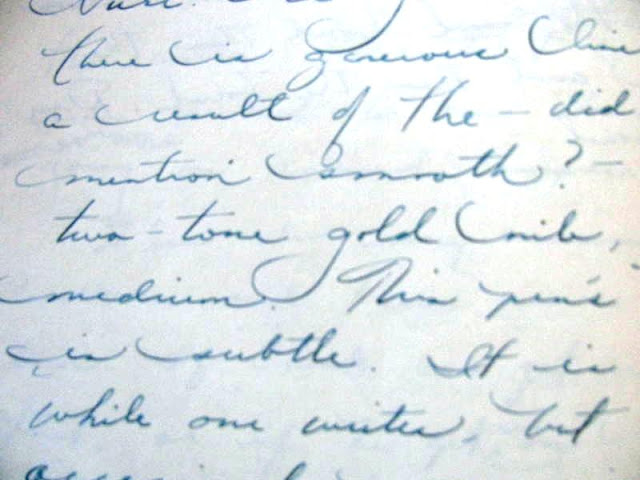 there is generous line
a result of the - did
mention smooth? -
two-tone gold nib,
medium. This pen's
is subtle. It is
while one writes, but